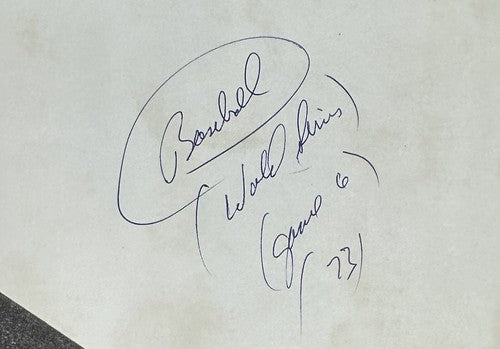 Baseball
(World Series)
(game 6)
(73)